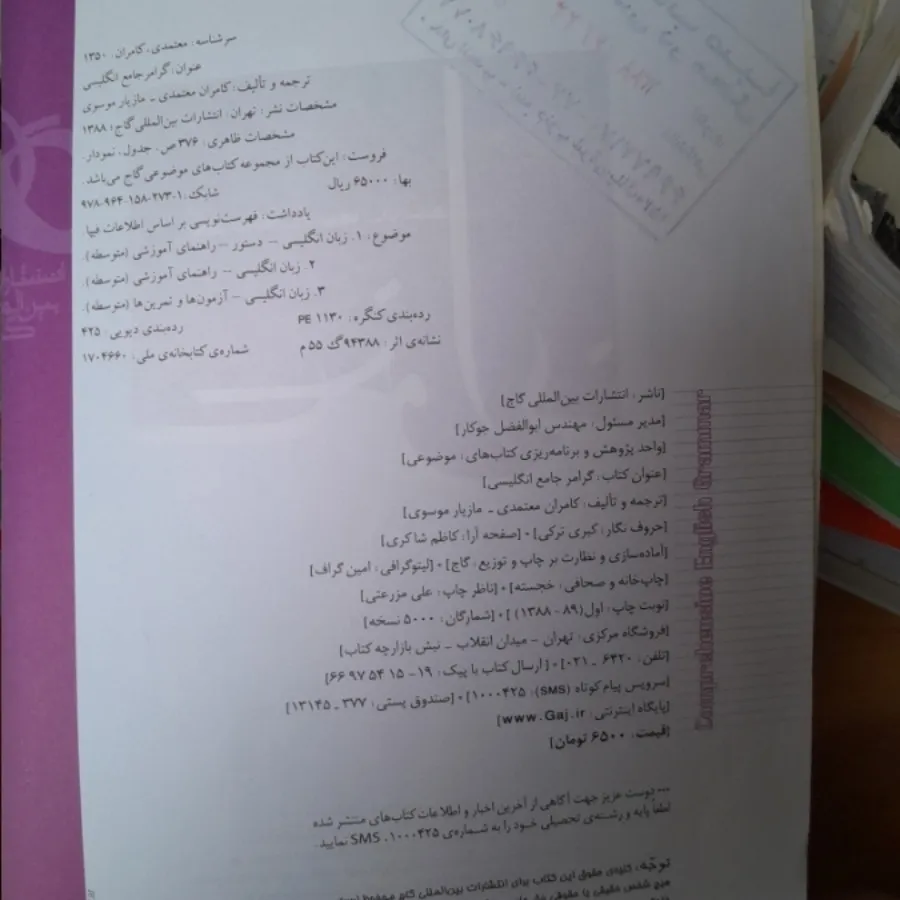 سرشناسه: معتمدی، کامران. ۱۳۵۰
عنوان: گرامر جامع انگلیسی
ترجمه و تألیف: کامران معتمدی - مازیار موسوی
مشخصات نشر: تهران: انتشارات بین‌المللی گاج؛ ۱۳۸۸
مشخصات ظاهری: ۳۷۶ ص. جدول، نمودار.
فروست: این‌کتاب از مجموعه کتاب‌های موضوعی گاج می‌باشد.
بها: ۶۵۰۰۰ ریال شابک: ۱-۲۷۳-۱۵۸-۹۶۴-۹۷۸
یادداشت: فهرست‌نویسی بر اساس اطلاعات فیپا
موضوع: ۱. زبان انگلیسی -- دستور -- راهنمای آموزشی (متوسطه).
۲. زبان انگلیسی -- راهنمای آموزشی (متوسطه).
۳. زبان انگلیسی - آزمون‌ها و تمرین‌ها (متوسطه).
رده‌بندی کنگره: PE ۱۱۳۰ رده‌بندی دیویی: ۴۲۵
نشانه‌ی اثر: ۹۴۳۸۸گ ۵۵ م شماره‌ی کتابخانه‌ی ملی: ۱۷۰۴۶۶۰
[ناشر: انتشارات بین‌المللی گاج]
[مدیر مسئول: مهندس ابوالفضل جوکار]
[واحد پژوهش و برنامه‌ریزی کتاب‌های: موضوعی]
[عنوان کتاب: گرامر جامع انگلیسی]
[ترجمه و تألیف: کامران معتمدی - مازیار موسوی]
[حروف نگار: کبری ترکی] • [صفحه آرا: کاظم شاکری]
[آماده‌سازی و نظارت بر چاپ و توزیع: گاج] • [لیتوگرافی: امین گراف]
[چاپ‌خانه و صحافی: خجسته] • [ناظر چاپ: علی مزرعتی]
[نوبت چاپ: اول(۸۹ - ۱۳۸۸) ] • [شمارگان: ۵۰۰۰ نسخه]
[فروشگاه مرکزی: تهران - میدان انقلاب - نبش بازارچه کتاب]
[تلفن: ۶۴۲۰ ـ ۰۲۱] • [ارسال کتاب با پیک: ۱۹- ۱۵ ۵۴ ۹۷ ۶۶]
[سرویس پیام کوتاه (SMS): ۱۰۰۰۴۲۵] • [صندوق پستی: ۳۷۷ ـ ۱۳۱۴۵]
[پایگاه اینترنتی: www.Gaj.ir]
[قیمت: ۶۵۰۰ تومان]
Comprehensive English Grammar
••• دوست عزیز جهت آگاهی از آخرین اخبار و اطلاعات کتاب‌های منتشر شده
لطفاً پایه و رشته‌ی تحصیلی خود را به شماره‌ی ۱۰۰۰۴۲۵، SMS نمایید.
توجّه: کلیه‌ی حقوق این کتاب برای انتشارات بین‌المللی گاج محفوظ
هیچ شخص حقیقی یا حقوقی